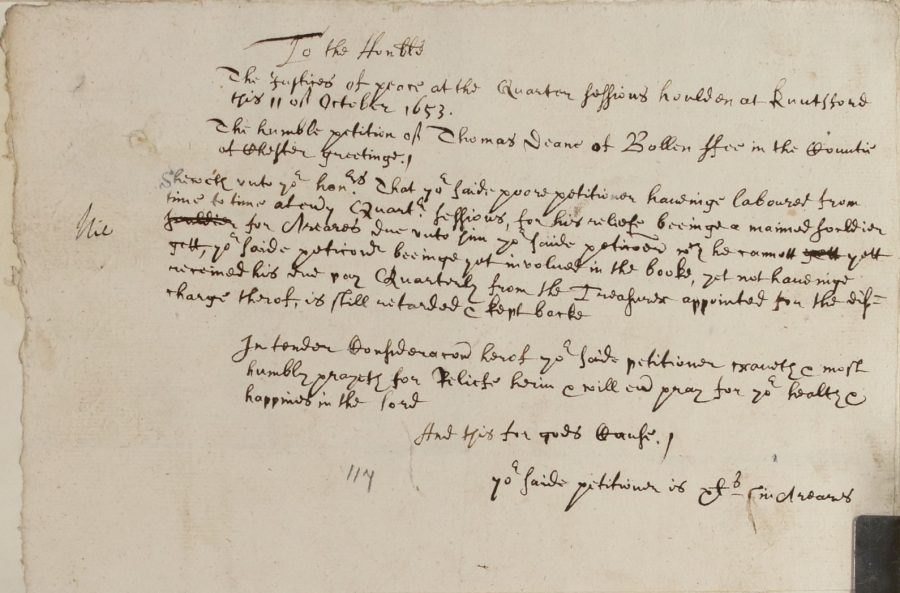 To the Honble
The Justices of peace at the Quarter Sessions houlden at Knutsford
this 11 of October 1653.
The humble petition of Thomas Deane of Bollen ffee in the Countie
of Chester greetinge.
Sheweth vnto yor honrs That yor saide poore petitioner haueinge laboured from
time to time at eu'y Quartr Sessions, for his reliefe beeinge a maimed souldier
Nil
souldier for Areares due vnto him yor saide petitioner wch he cannott gett yett
gett, yor saide peticonr beeinge yet involued in the booke, yet not haueinge
receiued his due pay Quarterly from the Treasurer appointed for the dis=
charge therof, is still retarded & kept backe
In tender Consideracon herof yor saide petitioner craueth & most
humbly prayeth for Reliefe herin & will eu' pray for yor health &
happines in the Lord
And this for gods Cause.
117
yor saide petitioner is in Areares